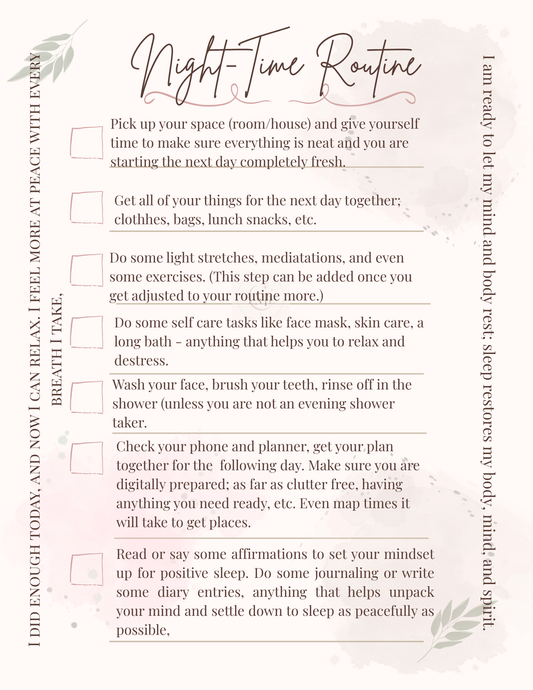 Night-Time Routine
Pick up your space (room/house) and give yourself
time to make sure everything is neat and you are
starting the next day completely fresh.
Get all of your things for the next day together;
clothhes, bags, lunch snacks, etc.
Do some light stretches, mediatations, and even
some exercises. (This step can be added once you
get adjusted to your routine more.)
Do some self care tasks like face mask, skin care, a
long bath - anything that helps you to relax and
destress.
Wash your face, brush your teeth, rinse off in the
shower (unless you are not an evening shower
taker.
Check your phone and planner, get your plan
together for the following day. Make sure you are
digitally prepared; as far as clutter free, having
anything you need ready, etc. Even map times it
will take to get places.
Read or say some affirmations to set your mindset
up for positive sleep. Do some journaling or write
some diary entries, anything that helps unpack
your mind and settle down to sleep as peacefully as
possible,
I DID ENOUGH TODAY, AND NOW I CAN RELAX. I FEEL MORE AT PEACE WITH EVERY
BREATH I TAKE,
I am ready to let my mind and body rest; sleep restores my body, mind, and spirit.